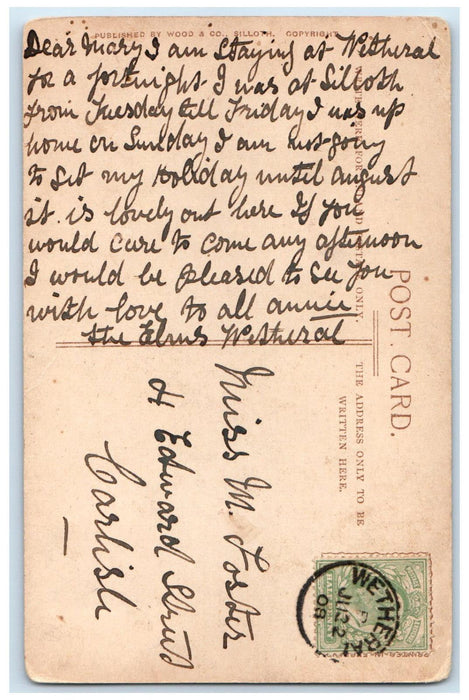 PUBLISHED BY WOOD & CO., SILLOTH. COPYRIGHT.
Dear Mary I am staying at Wetheral
for a fortnight I was at Silloth
from Tuesday till Friday I was up
home on Sunday I am not going
to get my Holliday until august
it is lovely out here If you
would care to come any afternoon
I would be pleased to see you
with love to all annie
the Elms Wetheral
POST CARD.
THE ADDRESS ONLY TO BE
WRITTEN HERE.
Miss M. Foster
4 Edward Street
Carlisle
WETHERAL
JY 22
08